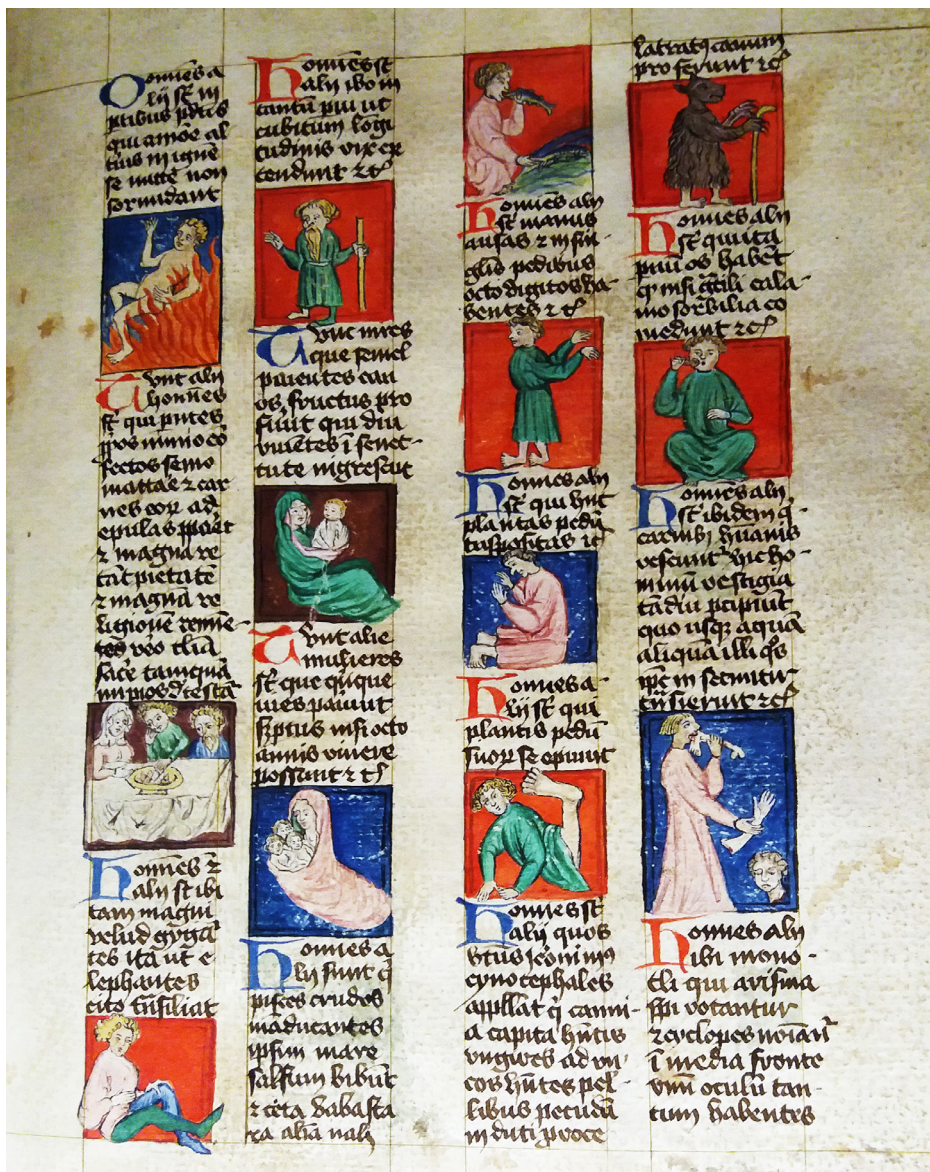 Homines a
lij st in
ptibus pdcis
qui amore al
tius in igne
se mitte non
formidant
Sunt alij
homines
st qui putes
ppos nimio co
fectos senio
mactat & car
nes eor ad
epulas ppat
& magna re
tat pietate
& magna re
ligione renue
tes vero illa
face tamqua
impios detesta
Homines &
alij st ibi
tam magni
velud gyga
tes ita ut e
lephantes
cito tnsiliat
Homines st
alij ibo in
tantu pui ut
cubitum longi
tudinis vix ex
tendunt & cet
Sunt m res
que semel
parientes can
os, fructus pro
fiunt qui diu
viventes i senec
tute nigrescut
Sunt alie
mulieres
st que quinque
vies pariunt
st ptus infi octo
annis vivere
possunt & cet
Homines a
lij sunt q
pisces crudos
maducantes
ipsum mare
salsum bibunt
& ceta
alia
Homines alij
st manus
ausas & in sin
glis pedibus
octo digitos ha
bentes & c
Homines alij
st qui hnt
plantas pedu
tnspositas
Homines a
lij st qui
plantis pedu
suor se opiunt
Homines st
alij quos
btus Jeronimus
cynocephales
appllat q canni
a capita hntis
ungwes ad un
cos hntes pel
libus pecudu
induti proce
latratq canum
proferunt & c
Homines alij
st qui ita
puu os habent
q insi gtili cala
mo sorbilia co
medunt & c
Homines alij
st ibidem q
carnibus huanis
vescunt hic ho
minu vestigia
tadiu pcipiunt
quo usq aqua
aliqua illi quos
ipc in secuntur
tnsierunt & c
Homines alij
ibi mono
cli qui arisma
spi votantur
& cyclopes noiant
i media fronte
unu oculu tan
tum habentes